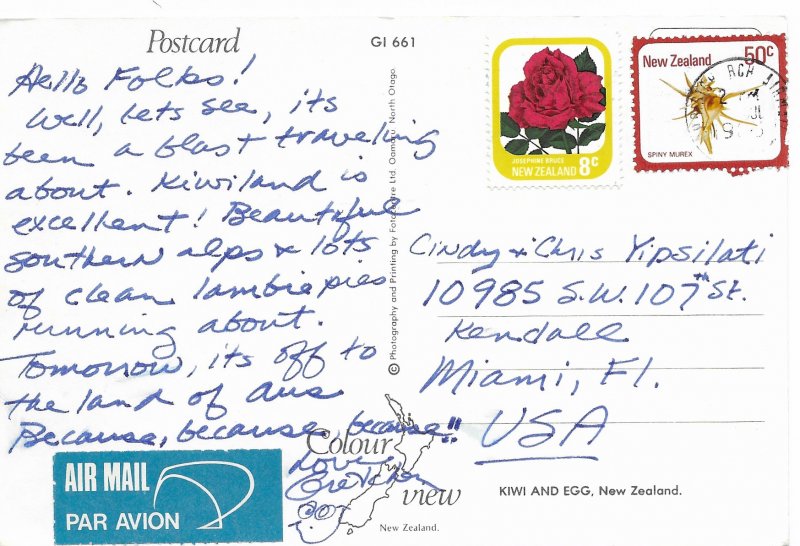 Postcard
GI 661
Hello Folks!
Well, lets see, its
been a blast traveling
about. Kiwiland is
excellent! Beautiful
southern alps & lots
of clean lambie pies
running about.
Tomorrow, its off to
the land of Aus
Because, because, because!!
Love
Gretchen
AIR MAIL
PAR AVION
© Photography and Printing by Fotocentre Ltd. Oamaru, North Otago.
JOSEPHINE BRUCE
NEW ZEALAND 8c
New Zealand 50c
SPINY MUREX
Cindy & Chris Yipsilati
10985 S.W. 107th St.
Kendall
Miami, Fl.
USA
Colour
view
New Zealand.
KIWI AND EGG, New Zealand.